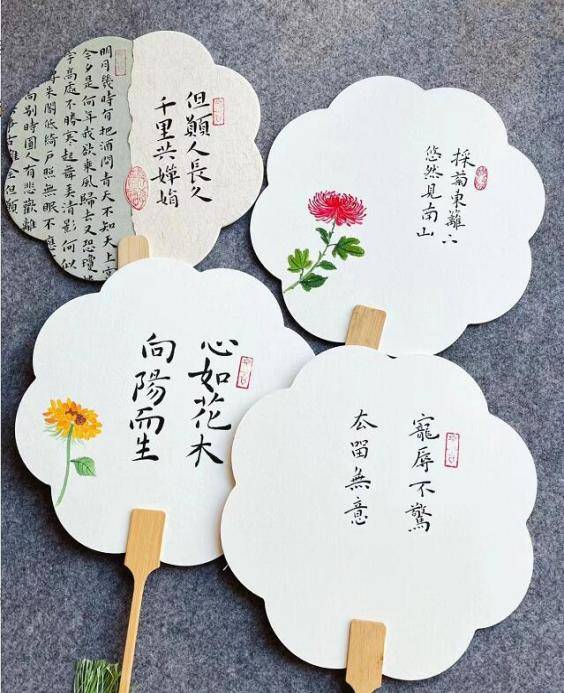 但願人長久
千里共嬋娟
明月幾時有把酒問青天不知天上
今夕是何年我欲乘風歸去又恐瓊
宇高處不勝寒起舞弄清影何似
朱閣低綺戶照無眠不應
向别時圓人有悲歡離
事古難全但願
採菊東籬下
悠然見南山
心如花木
向陽而生
寵辱不驚
去留無意